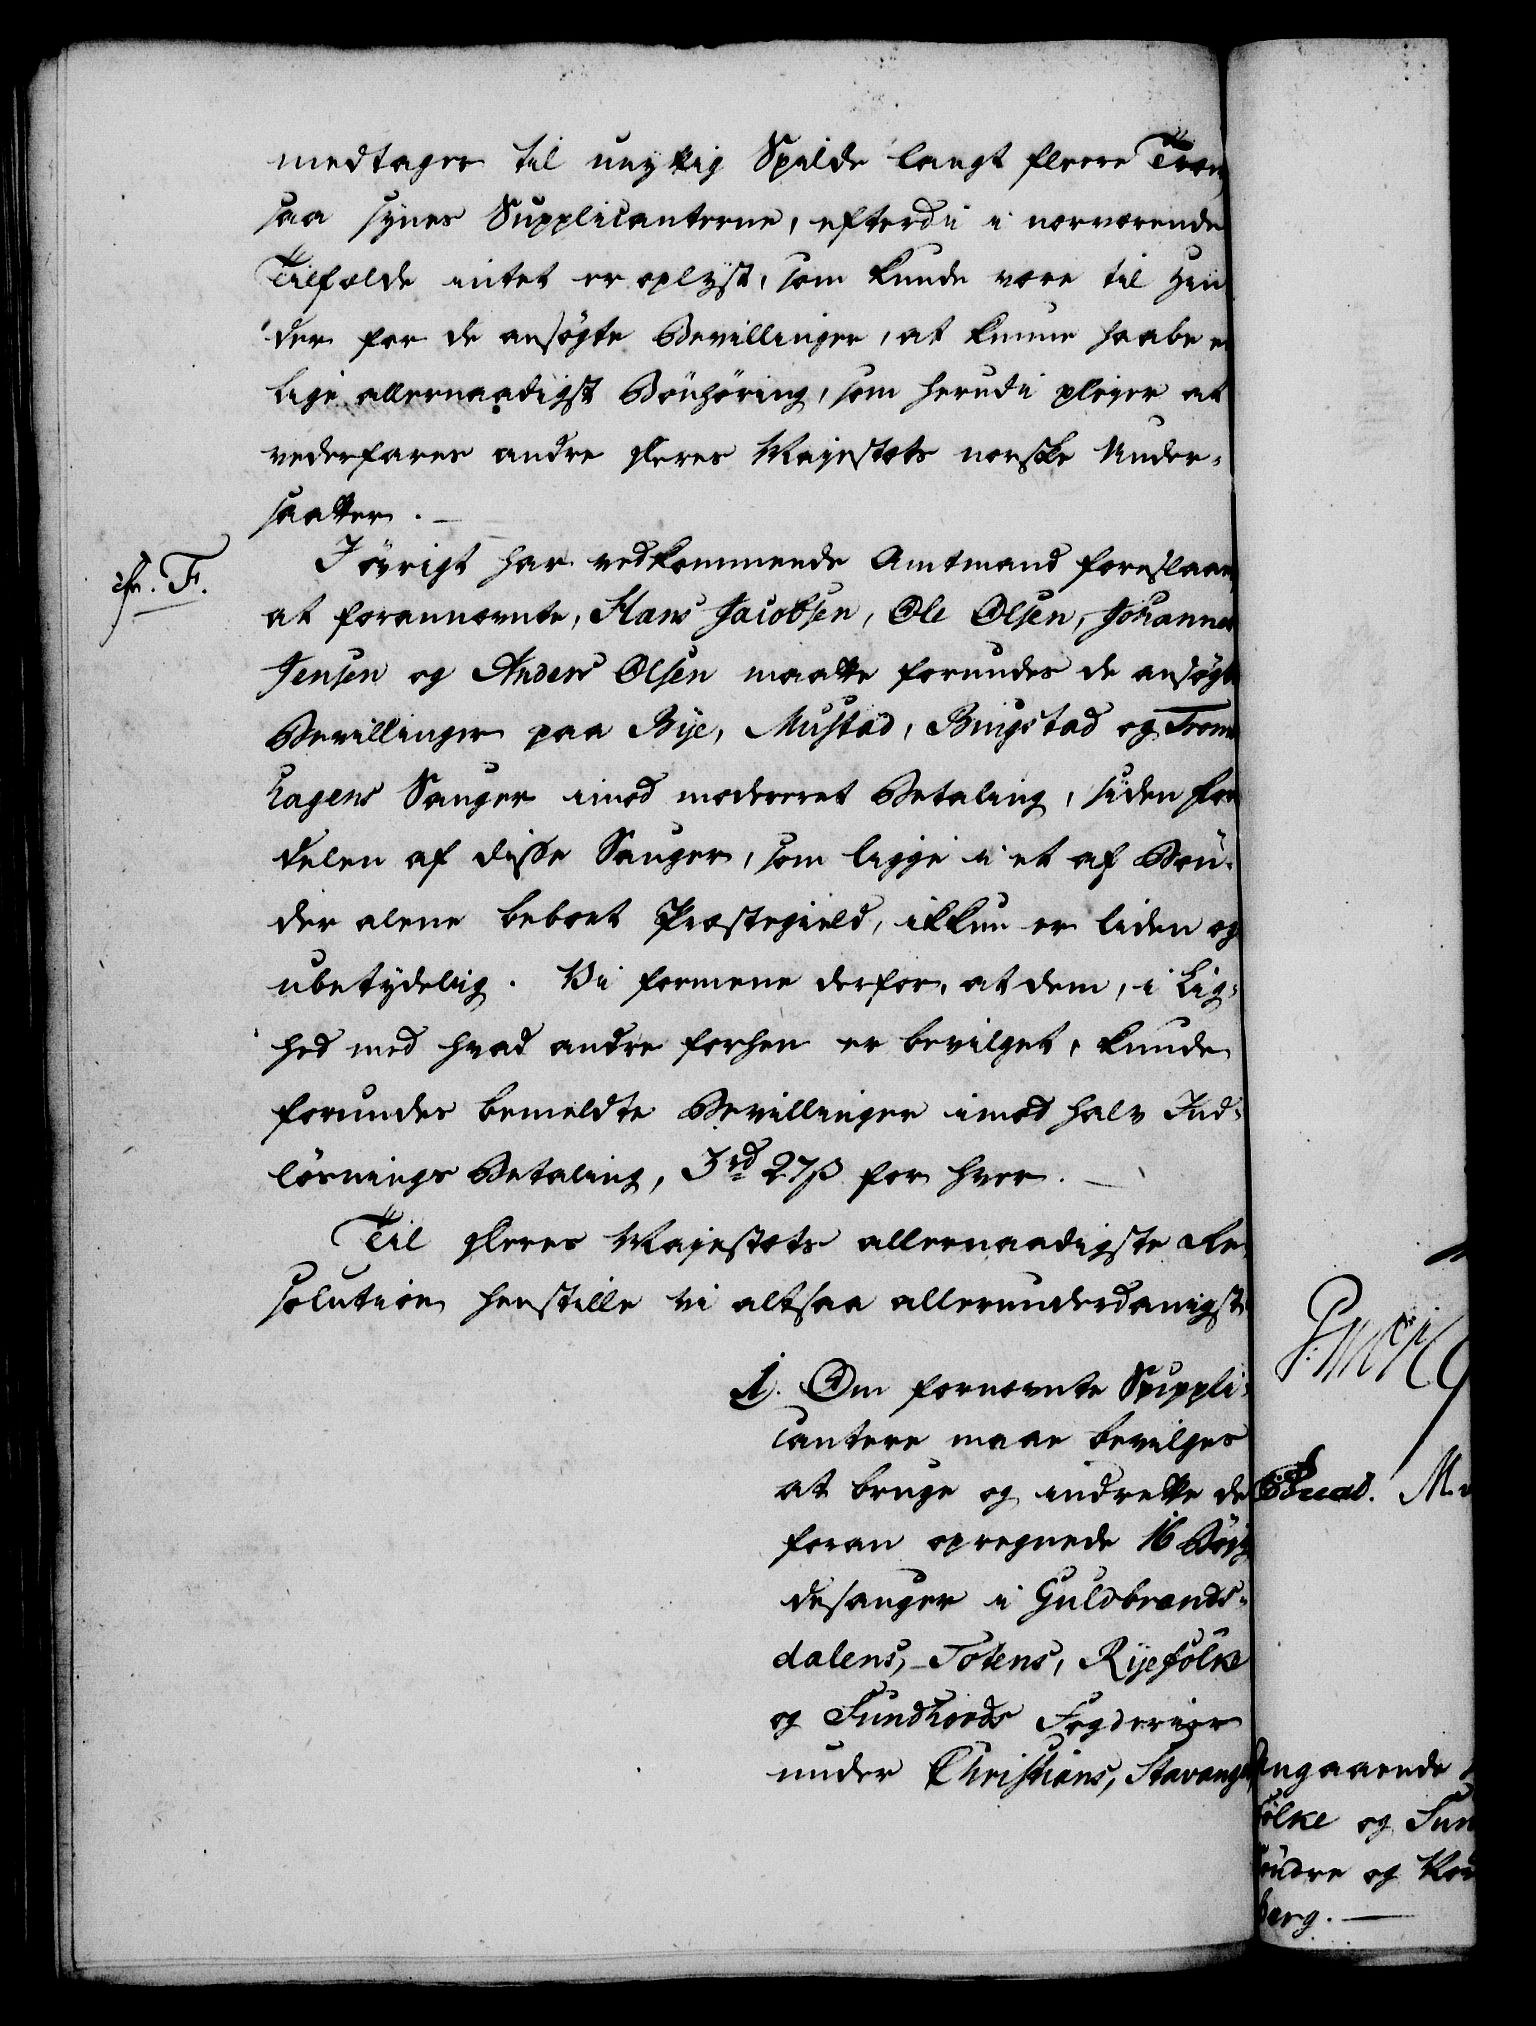 medtager til unyttig Spilde langt fleere Træer,
saa synes Supplicanterne, efterdi i nærværende
Tilfælde intet er oplyst, som kunde være til Hin¬
der for de ansøgte Bevillinger, at kunne haabe en
lige allernaadigst Bønhøring, som herudi pleyer at
vederfares andre Deres Majestæts norske Under¬
saatter.
cfr. F.
I øvrigt har vedkommende Amtmand foreslaaet,
at forannævnte, Hans Jacobsen, Ole Olsen, Johannes
Jensen og Anders Olsen maatte forundes de ansøgte
Bevillinger paa Bye, Mustad, Bingstad og Trom¬
hagens Sauger imod modereret Betaling, siden For¬
delen af disse Sauger, som ligge i et af Bøn¬
der alene beboet Præstegield, ikkun er liden og
ubetydelig. Vi formene derfor, at dem, i Lig¬
hed med hvad andre forhen er bevilget, kunde
forundes bemeldte Bevillinger imod halv Ind¬
løsnings Betaling, 3 rd 27 ß for hver.
Til Deres Majestæts allernaadigste Re¬
solution henstille vi altsaa allerunderdanigst:
1. Om fornævnte Suppli¬
cantere maae bevilges
at bruge og indrette de
foran opregnede 16 Bøig¬
desauger i Guldbrands¬
dalens, Totens, Ryefolke
og Sundhords Fogderier
under Christians, Stavanger
angaaende
folke og Sun
søndre og Nor
berg.